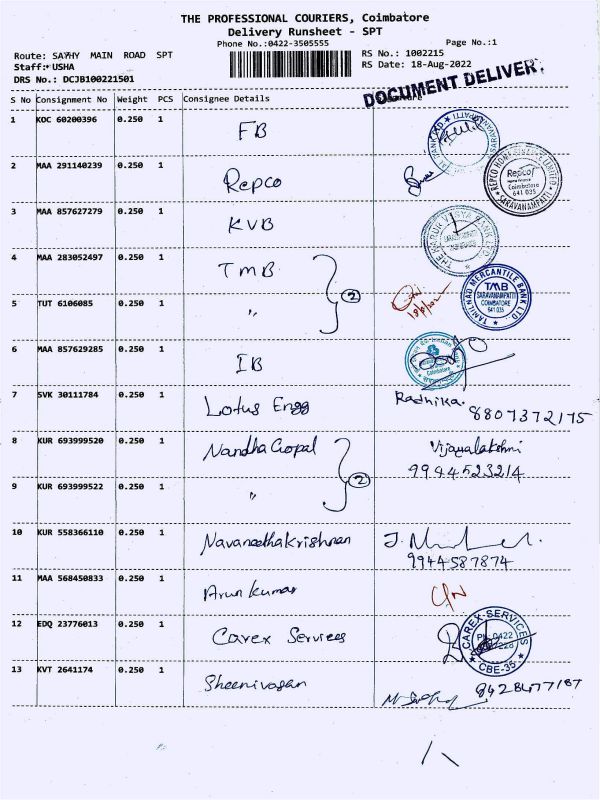 THE PROFESSIONAL COURIERS, Coimbatore
Delivery Runsheet - SPT
Phone No.:0422-3505555
Page No.:1
Route: SATHY MAIN ROAD SPT
RS No.: 1002215
Staff: USHA
RS Date: 18-Aug-2022
DRS No.: DCJB100221501
DOCUMENT DELIVER
S No Consignment No Weight PCS Consignee Details
1 KOC 60200396 0.250 1 FB
2 MAA 291140239 0.250 1 Repco
REPCO HOME FINANCE LIMITED
Repco
Coimbatore
641 035
SARAVANAMPATTI
3 MAA 857627279 0.250 1 KVB
THE KARUR VYSYA BANK LTD
4 MAA 283052497 0.250 1 TMB
2
TAMILNAD MERCANTILE BANK LTD
TMB
SARAVANAMPATTI
COIMBATORE
641 035
5 TUT 6106085 0.250 1 "
6 MAA 857629285 0.250 1 IB
Coimbatore
7 SVK 30111784 0.250 1 Lotus Engg Radhika. 8807372175
8 KUR 693999520 0.250 1 Nandha Gopal Vijayalakshmi
9944523214
2
9 KUR 693999522 0.250 1 "
10 KUR 558366110 0.250 1 Navaneethakrishnan
9944587874
11 MAA 568450833 0.250 1 Arun Kumar
12 EDQ 23776013 0.250 1 Carex Services
CAREX SERVICES
CBE-35
13 KVT 2641174 0.250 1 Sheenivasan
8428477187